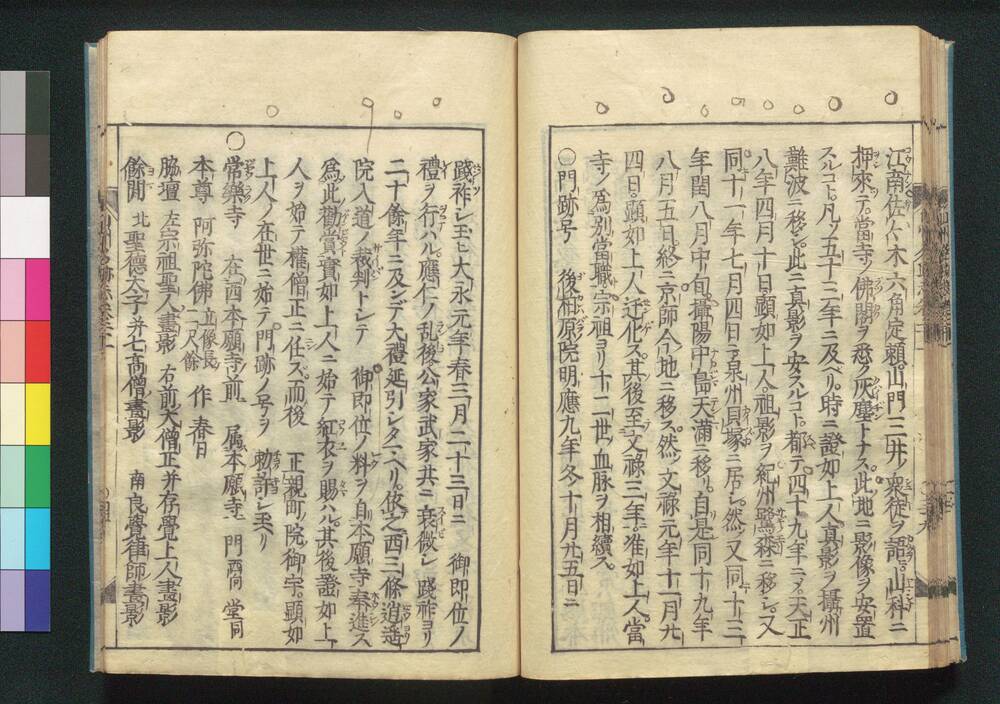 江南佐々木六角定頼山門三井ノ衆徒ヲ語ヒ山科ニ
押來テ當寺ノ佛閣ヲ悉ク灰塵トナス此地ニ影像ヲ安置
スルコト凡ソ五十二年ニ及ベリ時ニ證如上人真影ヲ攝州
難波ニ移シ此ニ真影ヲ安スルコト都テ四十九年ニメ天正
八年四月十日顕如上人祖影ヲ紀州鷺森ニ移シ又
同十一年七月四日ヨリ泉州貝塚ニ居シ然ソ又同十三
年閏八月中旬攝陽中島天滿ニ移ル自是同十九年
八月五日終ニ京師今ノ地ニ移ス然ソ文禄元年十一月廿
四日顕如上人迁化ス其後至文禄三年准如上人當
寺ノ為別當職宗祖ヨリ十二世ノ血脉ヲ相續ス
〇門跡号 後柏原院明應九年冬十月廿五日ニ
踐祚シ玉ヒ大永元年春三月二十三日ニ 御即位ノ
禮ヲ行ハル應仁ノ乱後公家武家共ニ衰微シ踐祚ヨリ
二十餘年ニ及ンデ大禮延引シタマヘリ依之西三條逍遥
院入道ノ裁判トシテ 御即位ノ料ヲ自本願寺奉進ス
為此勸賞實如上人ニ始テ紅衣ヲ賜ハル其後證如上
人ヲ始テ權僧正ニ任ズ而後 正親町ノ院御宇顕如
上人ノ在世ニ始テ門跡ノ号ヲ 勅許シ玉ヘリ
〇常樂寺 在西本願寺前 属本願寺 門西向 堂同
本尊 阿弥陀佛 立像長二尺餘 作春日
脇壇 左宗祖聖人畫影 右前大僧正并存覺上人畫影
餘間 北聖德太子并七高僧畫影 南良覺律師畫影